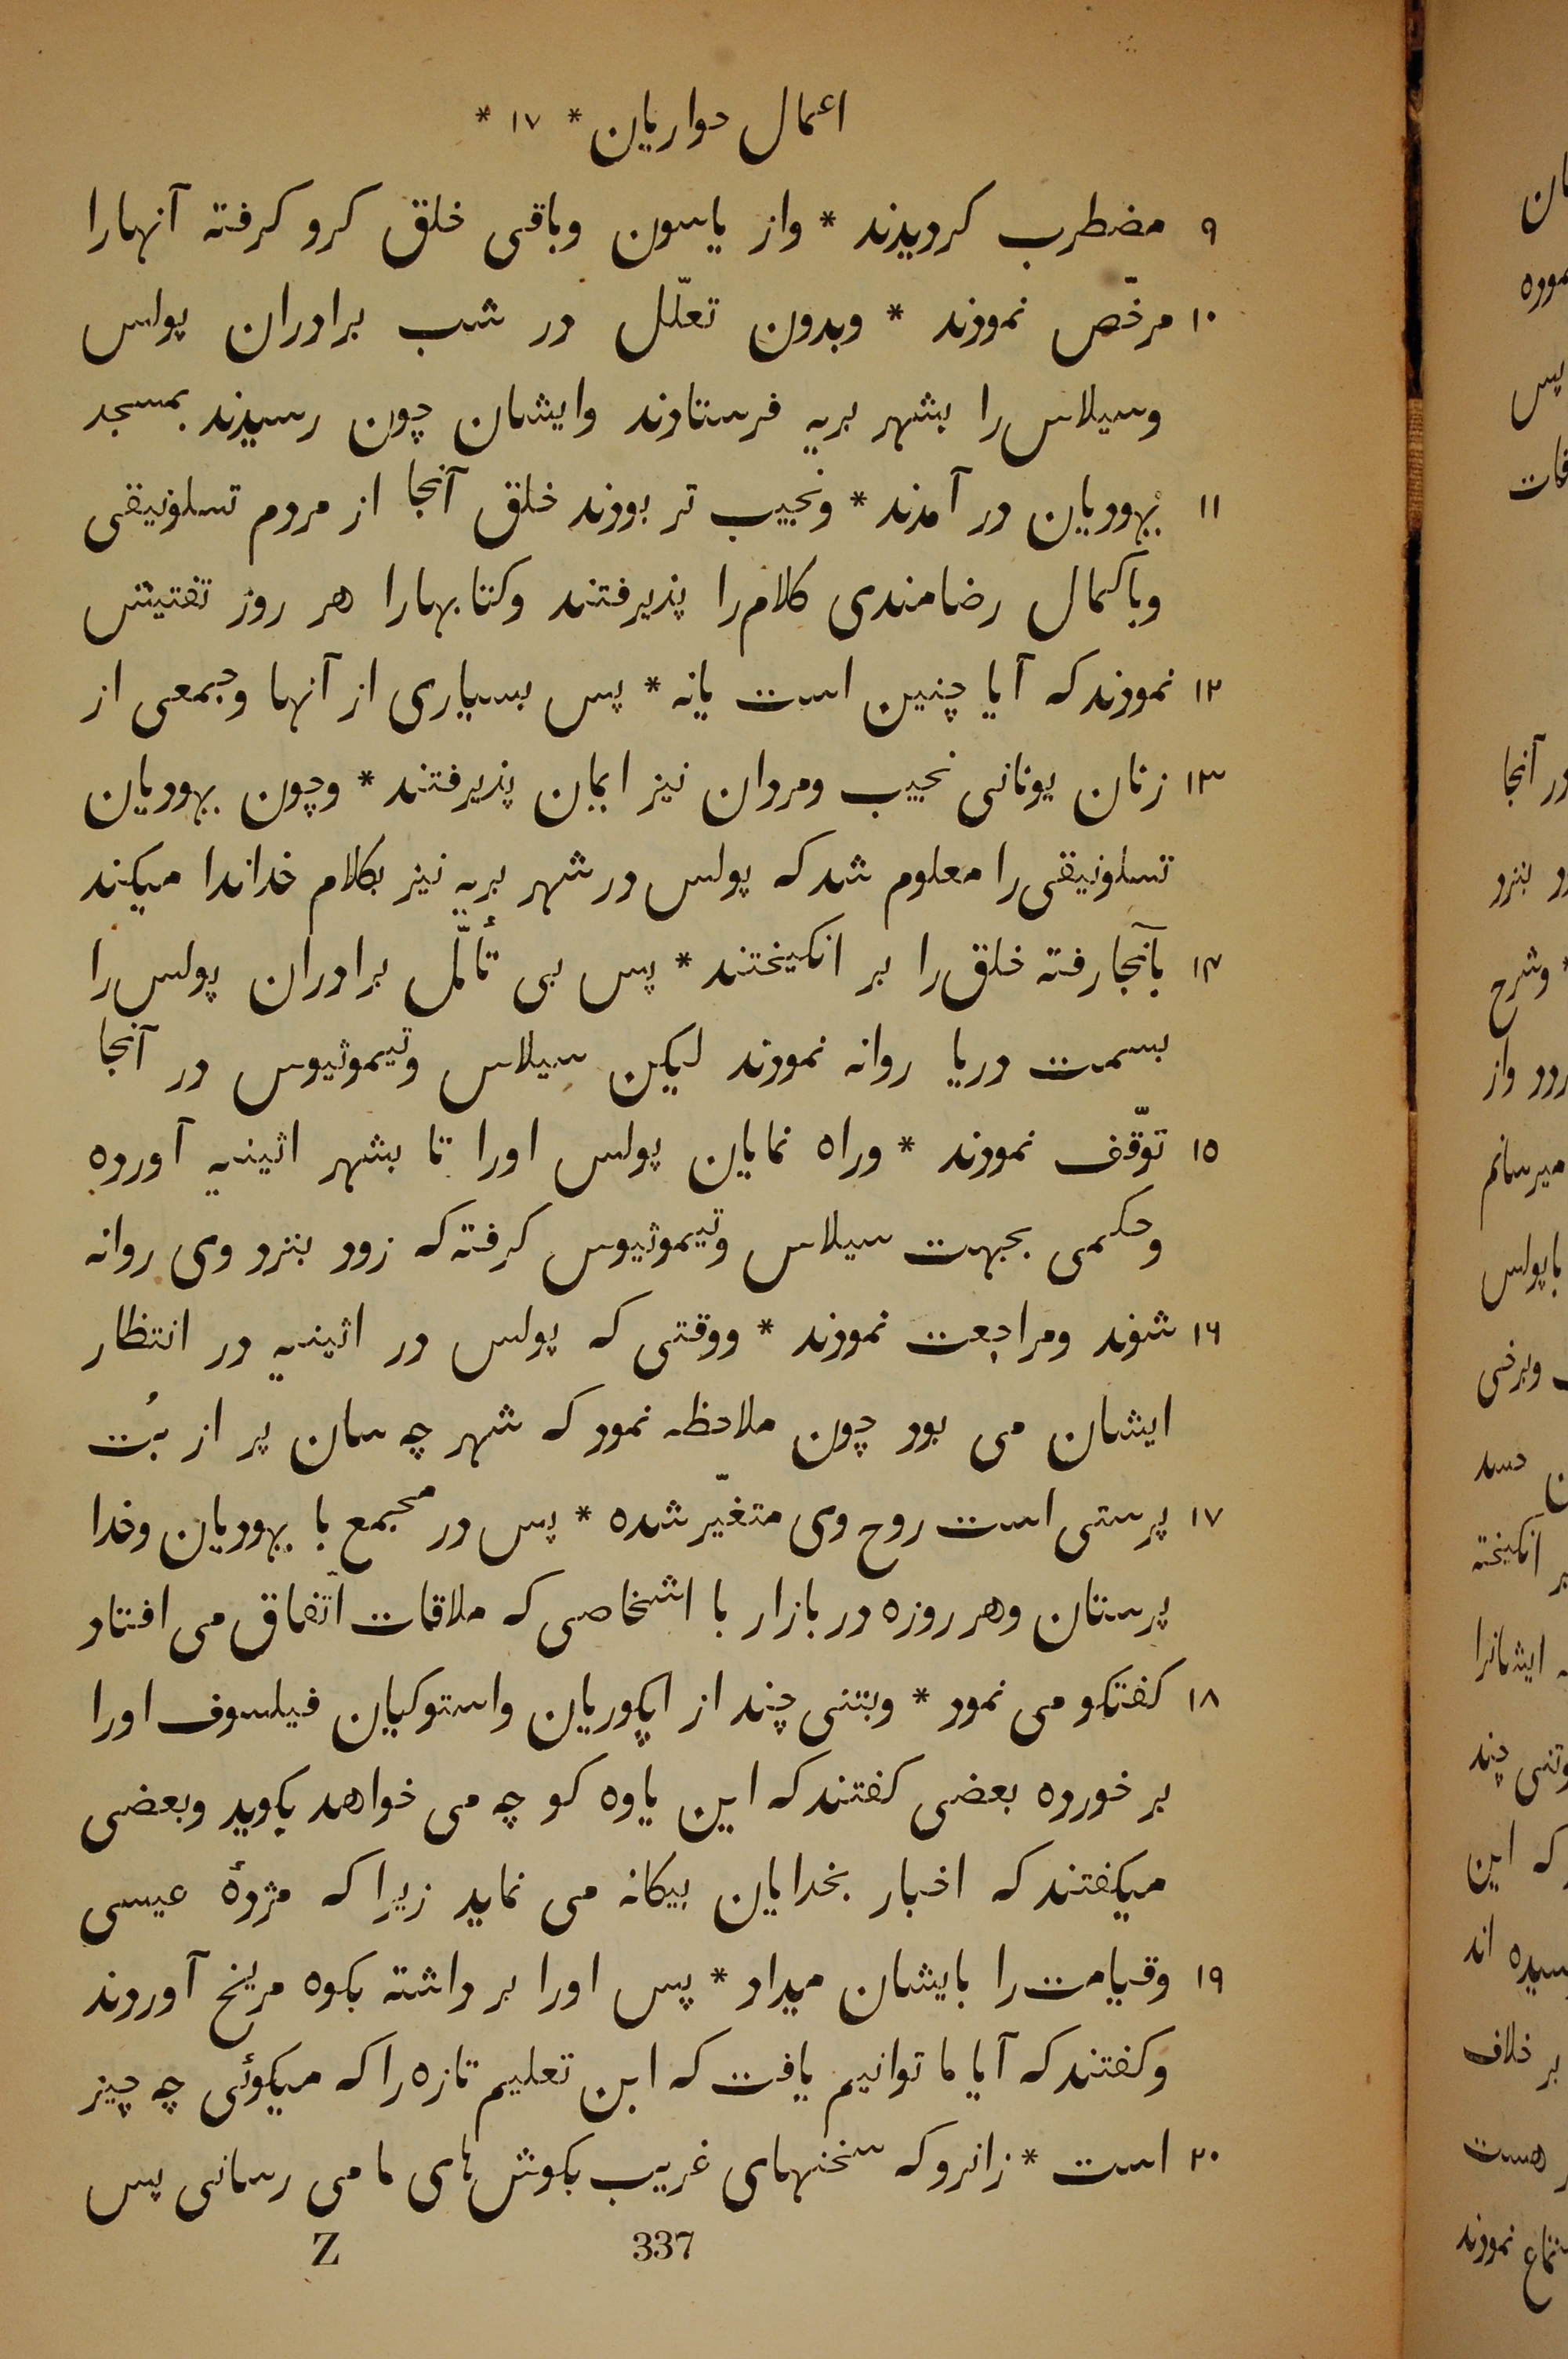 اعمال حواریان * ۱۷ *
۹ مضطرب کردیدند * واز یاسون وباقی خلق کرو کرفته آنهارا
۱۰ مرخّص نمودند * وبدون تعلّل در شب برادران پولس
وسیلاس را بشهر بریه فرستادند وایشان چون رسیدند بمسجد
۱۱ یهودیان در آمدند * ونجیب تر بودند خلق آنجا از مردم تسلونیقی
وبا کمال رضامندی کلام را پذیرفتند وکتابهارا هر روز تفتیش
۱۲ نمودند که آیا چنین است یانه * پس بسیاری از آنها وجمعی از
۱۳ زنان یونانی نجیب ومردان نیز ایمان پذیرفتند * وچون یهودیان
تسلونیقی را معلوم شد که پولس در شهر بریه نیز بکلام خداندا میکند
۱۴ بآنجا رفته خلق را بر انکیختند * پس بی تأمّل برادران پولس را
بسمت دریا روانه نمودند لیکن سیلاس وتیموثیوس در آنجا
۱۵ توقّف نمودند * وراه نمایان پولس اورا تا بشهر اثینیه آورده
وحکمی بجهت سیلاس وتیموثیوس کرفته که زود بنزد وی روانه
۱۶ شوند ومراجعت نمودند * ووقتی که پولس در اثینیه در انتظار
ایشان می بود چون ملاحظه نمود که شهر چه سان پر از بُت
۱۷ پرستی است روح وی متغیّر شده * پس در مجمع با یهودیان وخدا
پرستان وهر روزه در بازار با اشخاصی که ملاقات اتّفاق می افتاد
۱۸ کفتکو می نمود * وبتنی چند از اپکوریان واستوکیان فیلسوف اورا
بر خورده بعضی کفتند که این یاوه کو چه می خواهد بکوید وبعضی
میکفتند که اخبار بخدایان بیکانه می نماید زیرا که مژدهٔ عیسی
۱۹ وقیامت را بایشان میداد * پس اورا بر داشته بکوه مریخ آوردند
وکفتند که آیا ما توانیم یافت که این تعلیم تازه را که میکوئی چه چیز
۲۰ است * زانرو که سخنهای غریب بکوش های ما می رسانی پس
337 Z